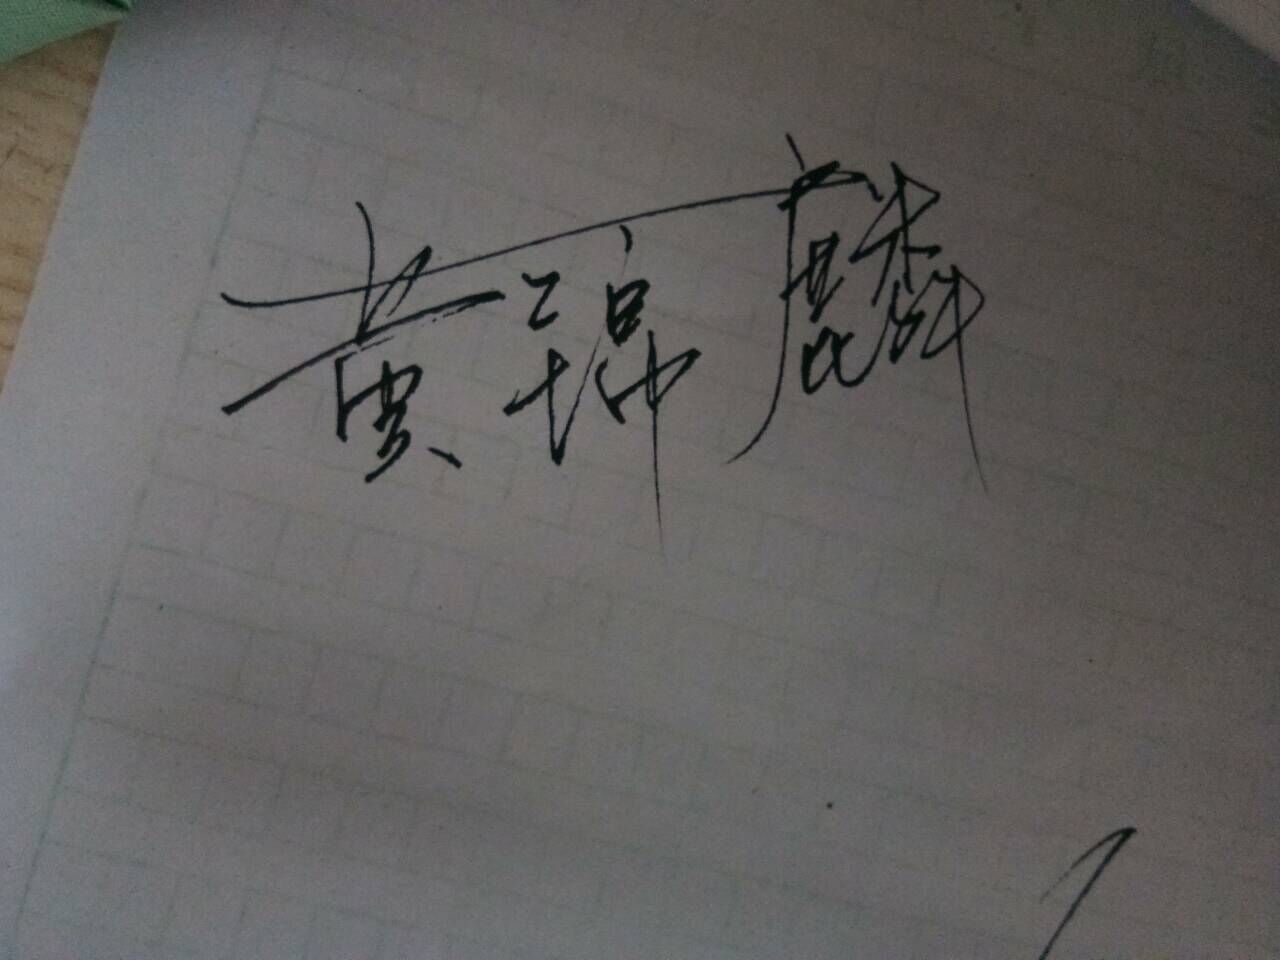 黄锦麟